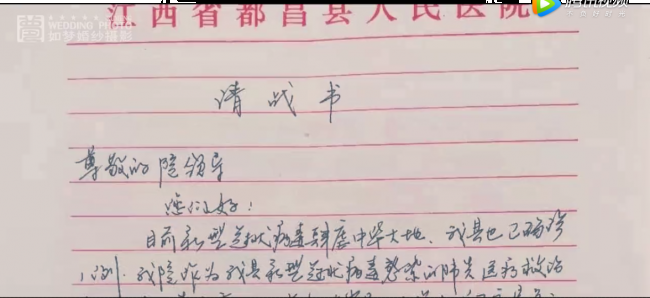 WEDDING PHOTO
如梦婚纱摄影
腾讯视频
江西省都昌县人民医院
请战书
尊敬的院领导
您们好：
目前新型冠状病毒肆虐中华大地、我县也已确诊
1例. 我院作为我县新型冠状病毒感染的肺炎医疗救治